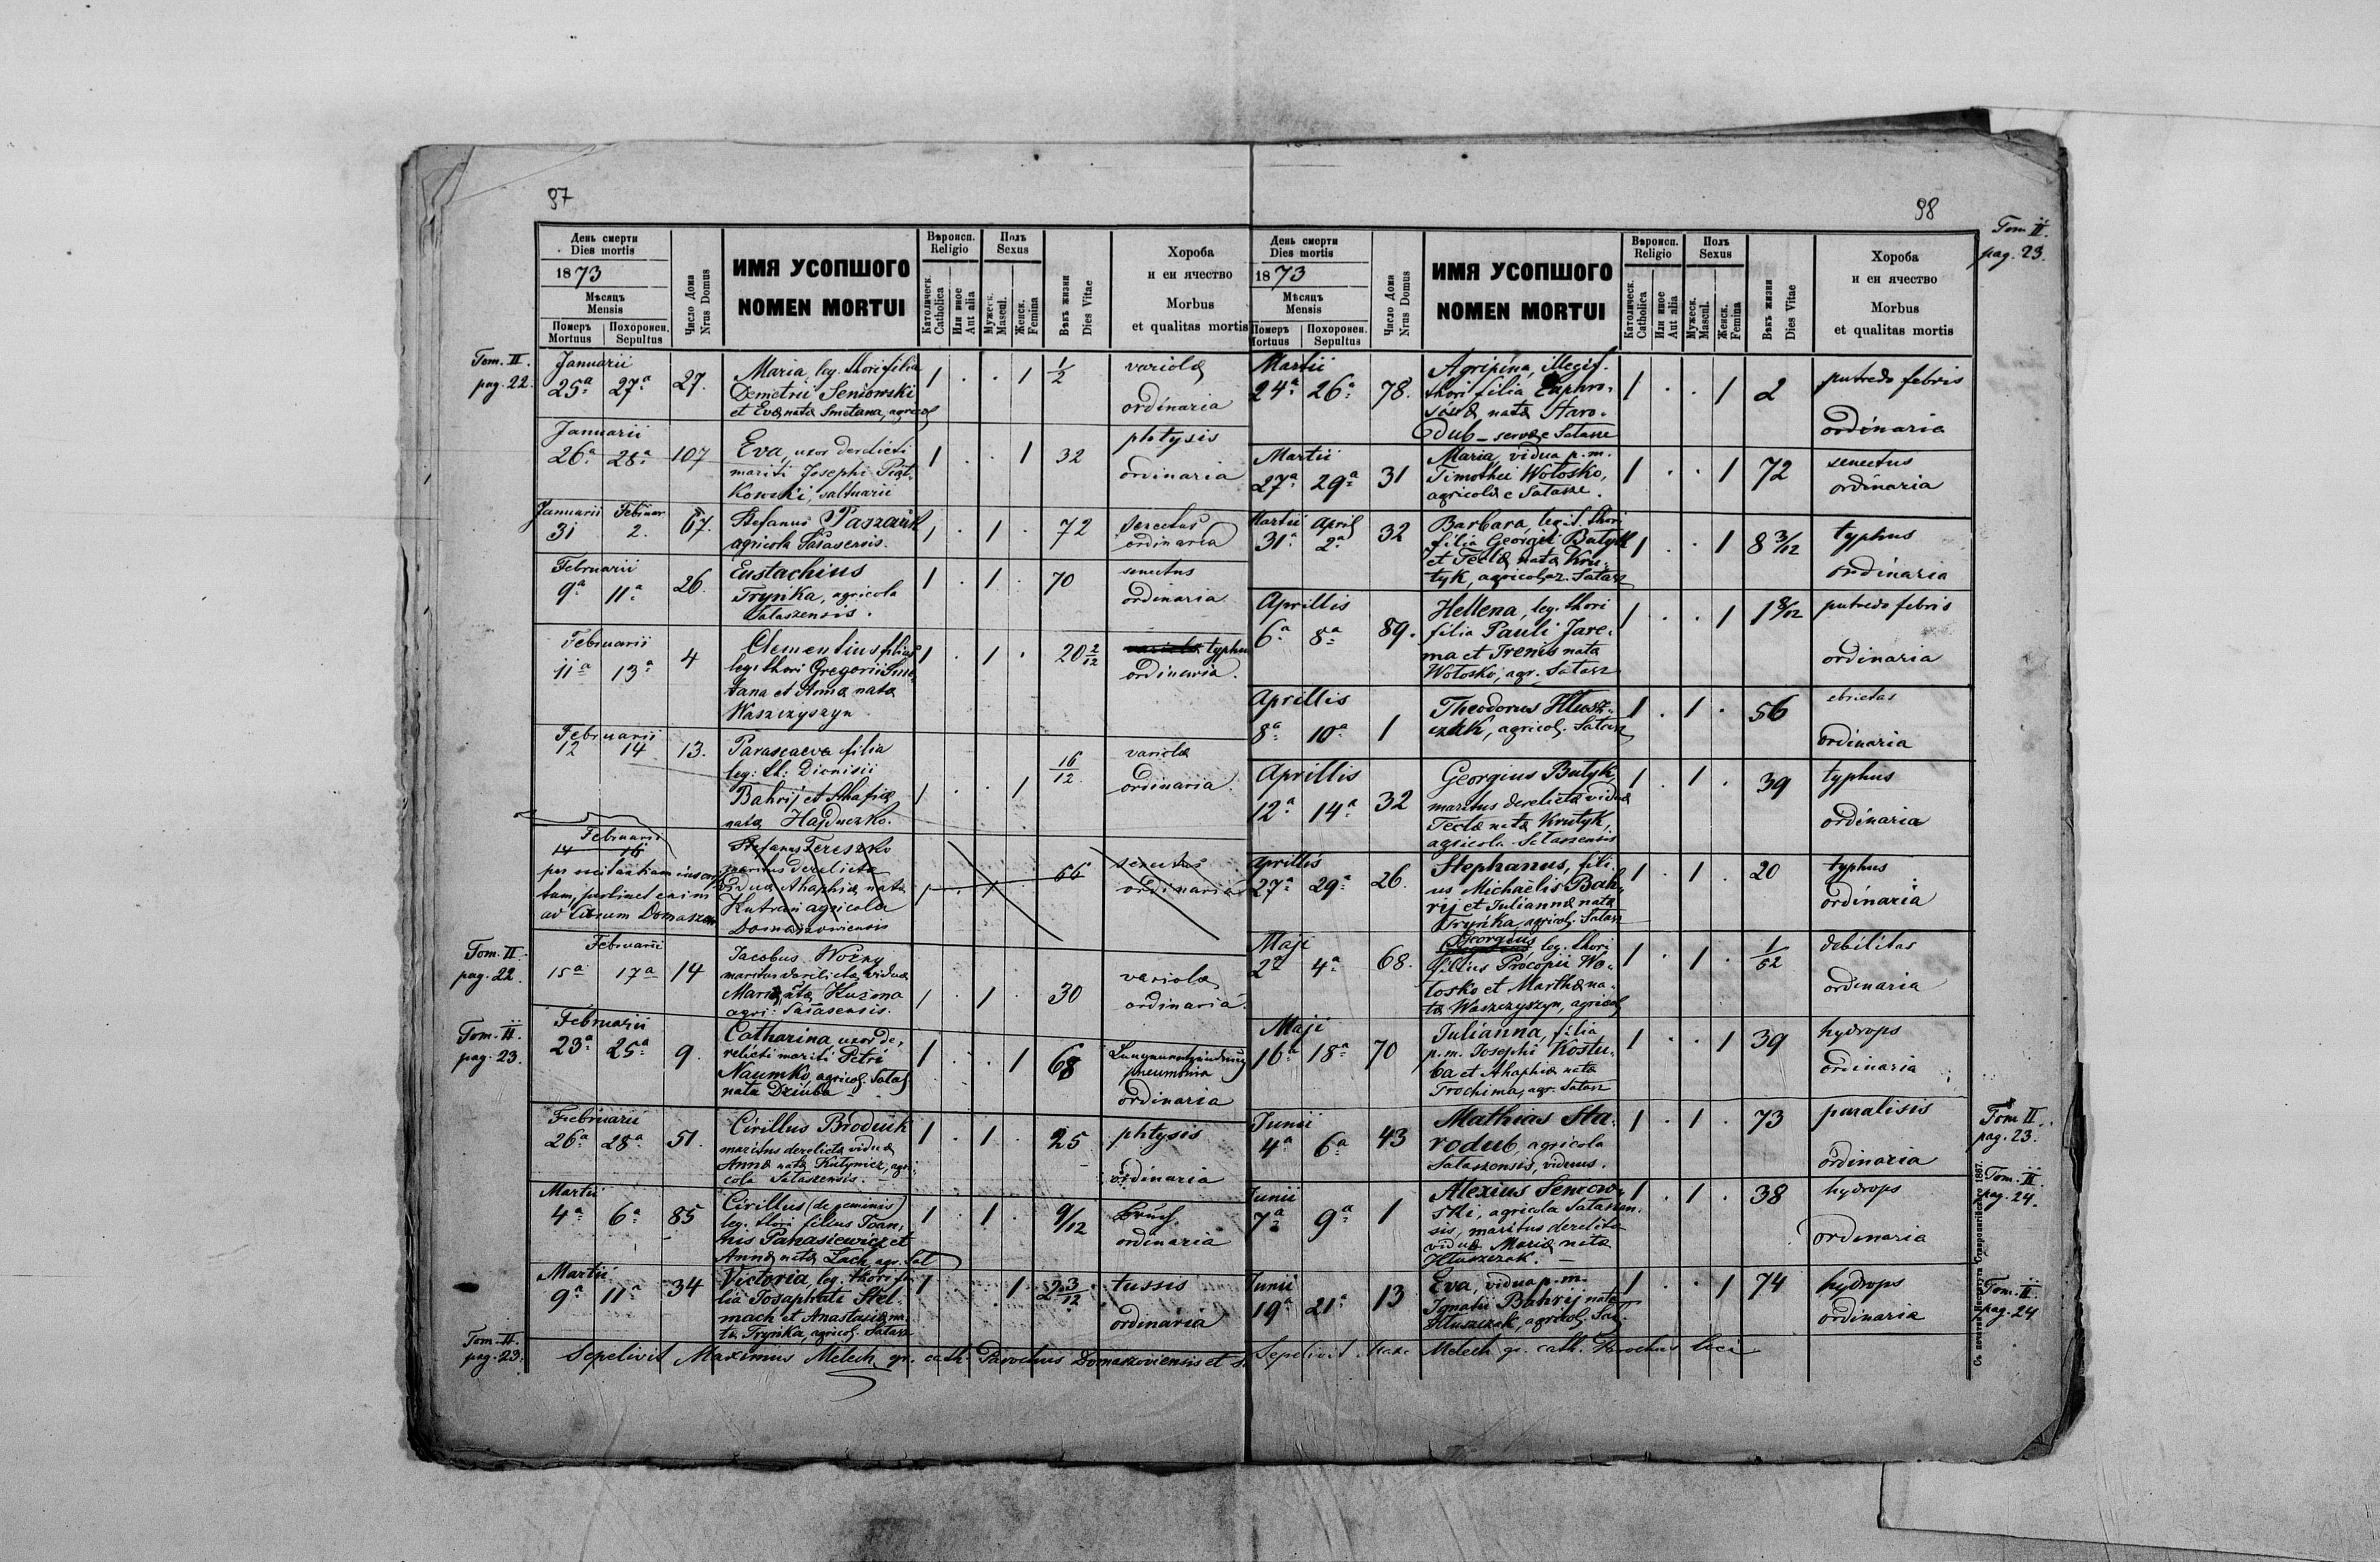 97
День смерти
Dies mortis
1873
Мѣсяцъ
Mensis
Померъ Похоронен.
Mortuus Sepultus
Число Дома
Nrus Domus
ИМЯ УСОПШОГО
NOMEN MORTUI
Вѣроисп.
Religio
Католическ.
Catholica
Или иное
Aut alia
Полъ
Sexus
Мужеск.
Mascul.
Женск.
Femina
Вѣкъ жизни
Dies Vitae
Хороба
и еи ячество
Morbus
et qualitas mortis
Tom. II.
pag. 22.
Januarii
25a 27a 27.
Maria, leg. thori filia
Demetrii Seniowski
et Eva nata Smetana, agricol
1 . . 1 1/2
variola
ordinaria
Januarii
26a 28a 107
Eva, uxor derelicti
mariti Josephi Piat-
kowski, saltuarii
1 . . 1 32
phtysis
ordinaria
Januarii Februar
31 2. 67.
Stefanus Paszań
agricola
1 . 1 . 72
ordinaria
Februarii
9a 11a 26.
Eustachius
Tryńka, agricola
Sałaszensis.
1 . 1 . 70
senectus
ordinaria
Februarii
11a 13a 4
Clementius filius
leg. thori Gregorii Sme-
tana et Anna nata
Waszczyszyn
1 . 1 . 20 2/12
typhus
ordinaria.
Februarii
12 14 13.
Parasceeva filia
leg: th: Dionisii
Bahrij et Ahafia
nata Hajduczko.
1 . . 1 16/12
variola
ordinaria
Februarii
14 16
tum, pertinet enim
ad librum Domaszow
Stefanus Tereszko
maritus derelicta
vidua Ahaphia nata
Kutrań agricola
Domaszowiensis
1 . 1 . 66
senectus
ordinaria
Tom. II.
pag. 22.
Februarii
15a 17a 14
Jacobus Woźny
maritus derelicta vidua
Maria nata Kuźma
agri:
1 . 1 . 30
variola
ordinaria.
Tom. II.
pag. 23.
Februarii
23a 25a 9.
Catharina uxor de-
relicti mariti Petri
Naumko, agricol. Sałas
nata Dziuba
1 . . 1 68
Lungenentzündung
pneumonia
ordinaria
Februarii
26a 28a 51.
Cirillus Broduik
maritus derelicta vidua
Anna nata Kutynicz, agri-
cola Sałaszensis.
1 . 1 . 25
phtysis
ordinaria
Martii
4a 6a 85
Cirillus (de geminis)
leg. thori filius Joan-
nis Panasiewicz et
Anna nata Lach, agr. Sał
1 . 1 . 9/12
ordinaria
Martii
9a 11a 34
Victoria, leg. thori fi-
lia Josaphate Stel-
mach et Anastasia na-
ta Tryńka, agricol. Sałasz
1 . . 1 2 3/12
tussis
ordinaria
Tom. II.
pag. 23.
Sepelivit Maximus Melech gr. cath. Parochus Domaszoviensis et
98
Tom. II.
pag. 23.
День смерти
Dies mortis
1873
Мѣсяцъ
Mensis
Померъ Похоронен.
Mortuus Sepultus
Число Дома
Nrus Domus
ИМЯ УСОПШОГО
NOMEN MORTUI
Вѣроисп.
Religio
Католическ.
Catholica
Или иное
Aut alia
Полъ
Sexus
Мужеск.
Mascul.
Женск.
Femina
Вѣкъ жизни
Dies Vitae
Хороба
и еи ячество
Morbus
et qualitas mortis
Martii
24a 26a 78.
Agripina, illegit.
thori filia Euphro-
sina nata Staro-
dub - serva e Sałasze
1 . . 1 2
putredo febris
ordinaria
Martii
27a 29a 31
Maria, vidua p.m.
Timothei Wołoszko,
agricola e Sałasze.
1 . . 1 72
senectus
ordinaria
Martii April
31a 2a 32
Barbara, legit. thori
filia Georgii Butyk
et Tecla nata Kru-
tyk, agricolar. Sałasz
1 . . 1 8 3/12
typhus
ordinaria
Aprillis
6a 8a 89.
Hellena, leg. thori
filia Pauli Jare-
ma et Irenis nata
Wołosko, agr. Sałasz
1 . . 1 1 8/12
putredo febris
ordinaria
Aprillis
8a 10a 1
Theodorus Hłusz-
czak, agricol. Sałasz
1 . 1 . 56
ebrietas
ordinaria
Aprillis
12a 14a 32
Georgius Butyk,
maritus derelicta vidua
Tecla nata Krutyk,
agricola Sałaszensis
1 . 1 . 39
typhus
ordinaria
Aprillis
27a 29a 26.
Stephanus, fili-
us Michaëlis Bah-
rij et Julianna nata
Tryńka, agricol. Sałasz
1 . 1 . 20
typhus
ordinaria
Maji
2a 4a 68.
Georgius leg. thori
filius Procopii Wo-
łosko et Martha na-
ta Waszczyszyn, agricol
1 . 1 . 1/52
debilitas
ordinaria
Maji
16a 18a 70
Julianna, filia
p.m. Josephi Kostu-
ba et Ahaphia nata
Trochima, agr. Sałasz
1 . . 1 39
hydrops
ordinaria
Junii
4a 6a 43
Mathias Sta-
rodub, agricola
Sałaszensis, viduus.
1 . 1 . 73
paralisis
ordinaria
Tom. II.
pag. 23.
Junii
7a 9a 1
Alexius Seniow-
ski, agricola Sałaszen-
sis, maritus derelicta
vidua Maria nata
Hłuszczak.
1 . 1 . 38
hydrops
ordinaria
Tom. II.
pag. 24.
Junii
19a 21a 13
Eva, vidua p.m.
Ignatii Bahrij nata
Hłuszczak, agricol. Sał.
1 . . 1 74
hydrops
ordinaria
Tom. II.
pag. 24
Sepelivit Max. Melech gr. cath. Parochus loci
Съ печатни Института Ставропигійского 1867.